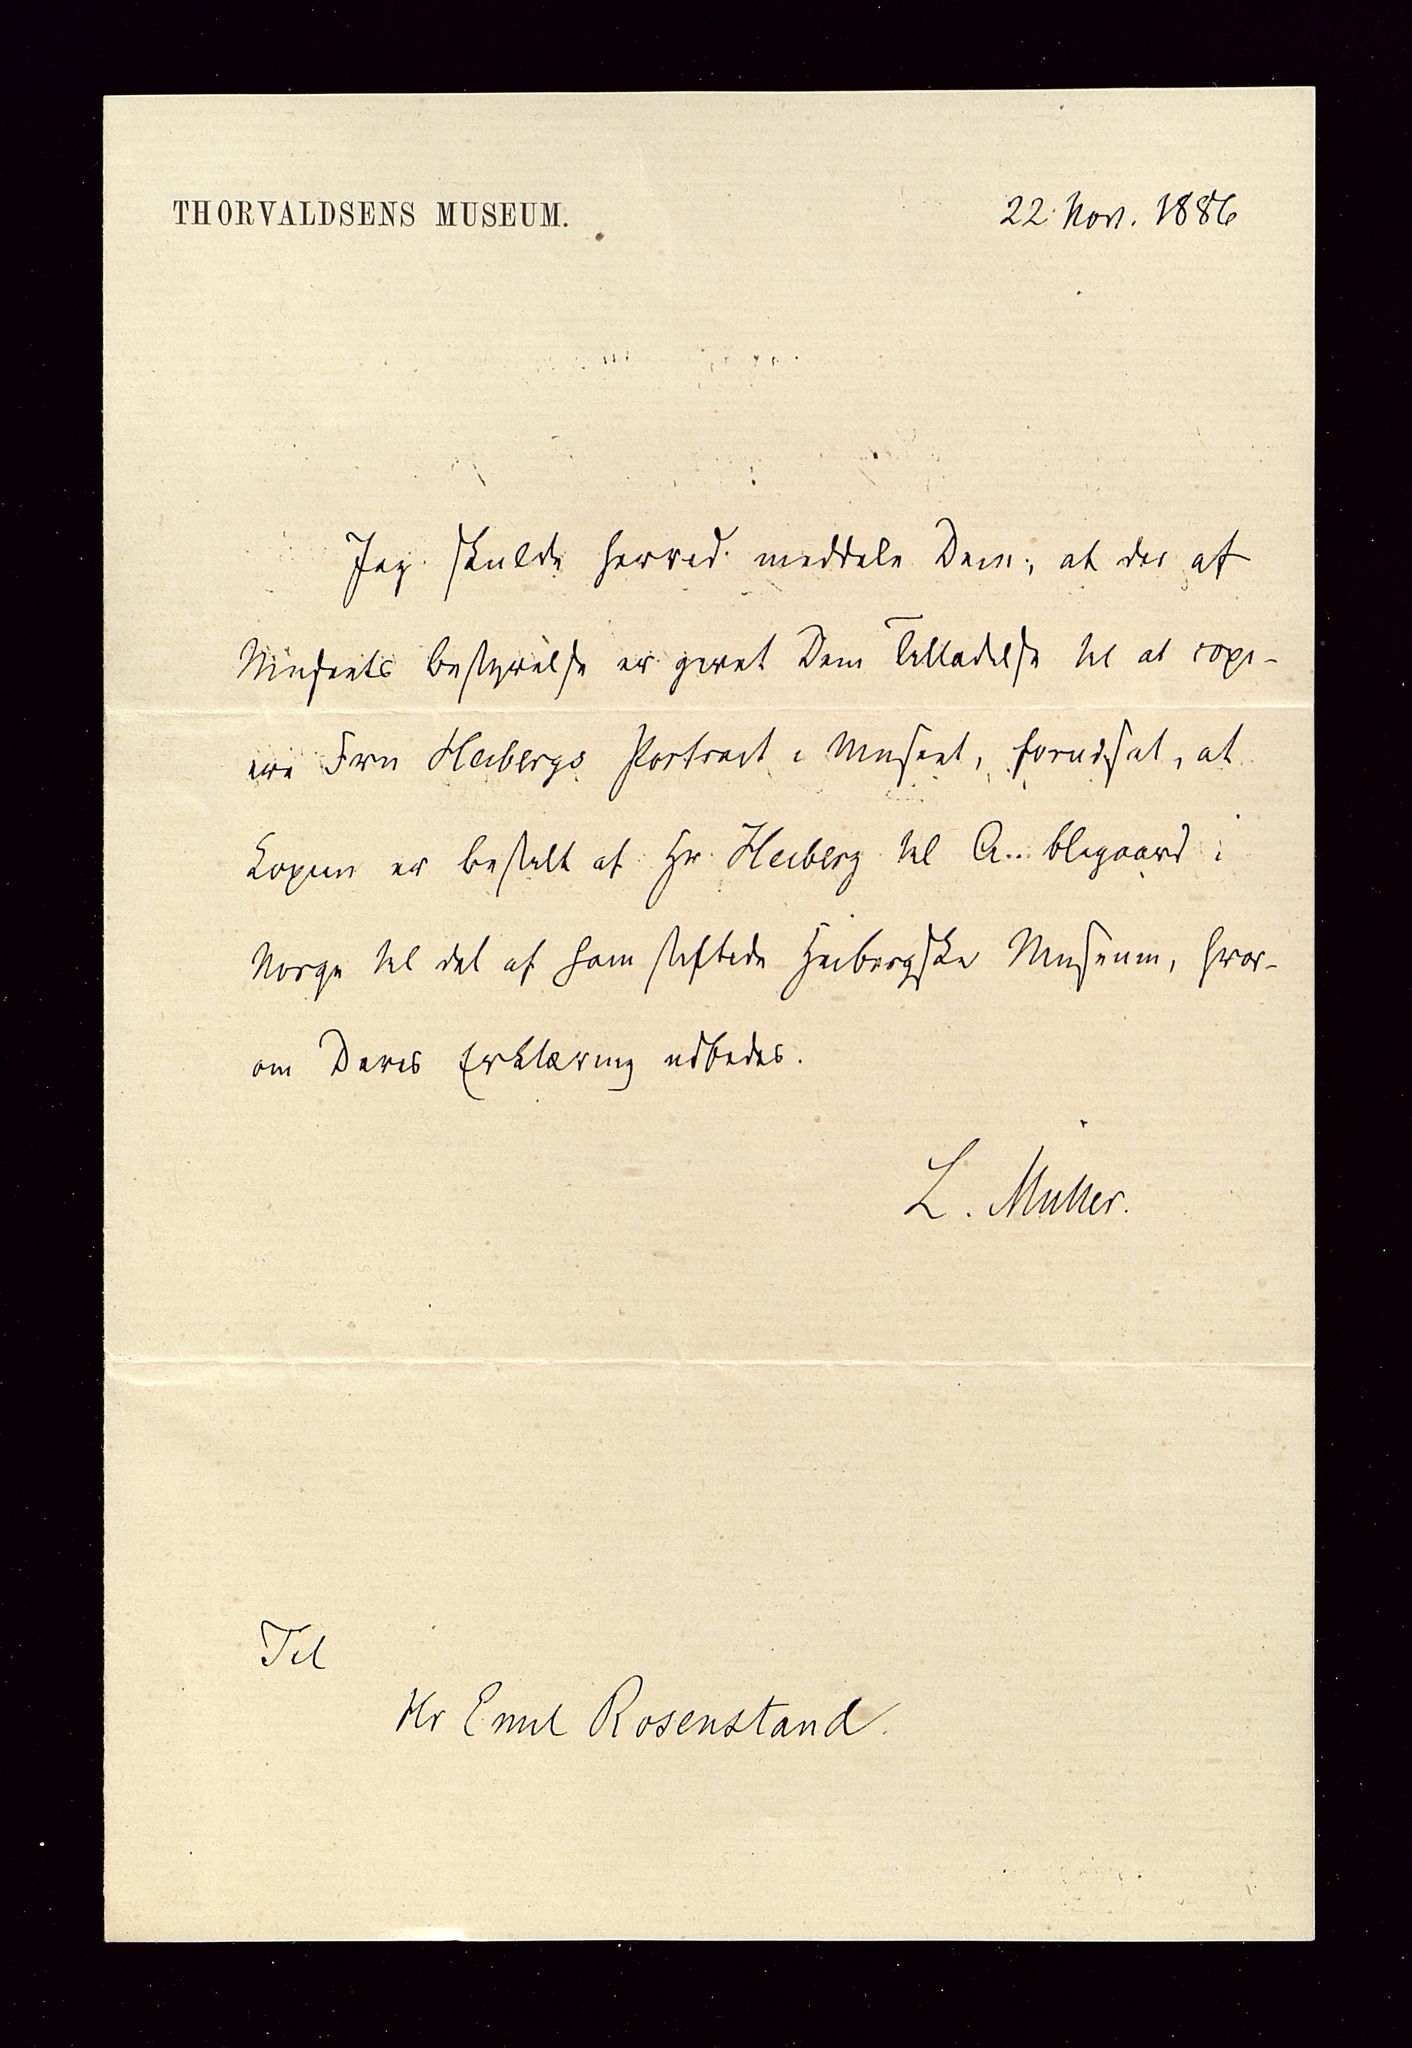 THORVALDSENS MUSEUM.
22 Nov. 1886
Jeg skulde herved meddele Dem, at der af
Museets Bestyrelse er givet Dem Tilladelse til at copi-
ere Fru Heibergs Portrait i Museet, forudsat, at
Copien er bestilt af Hr Heiberg til A.. blegaard i
Norge til det af ham stiftede Heibergske Museum, hvor-
om Deres Erklæring udbedes.
L. Müller.
Til
Hr Emil Rosenstand.